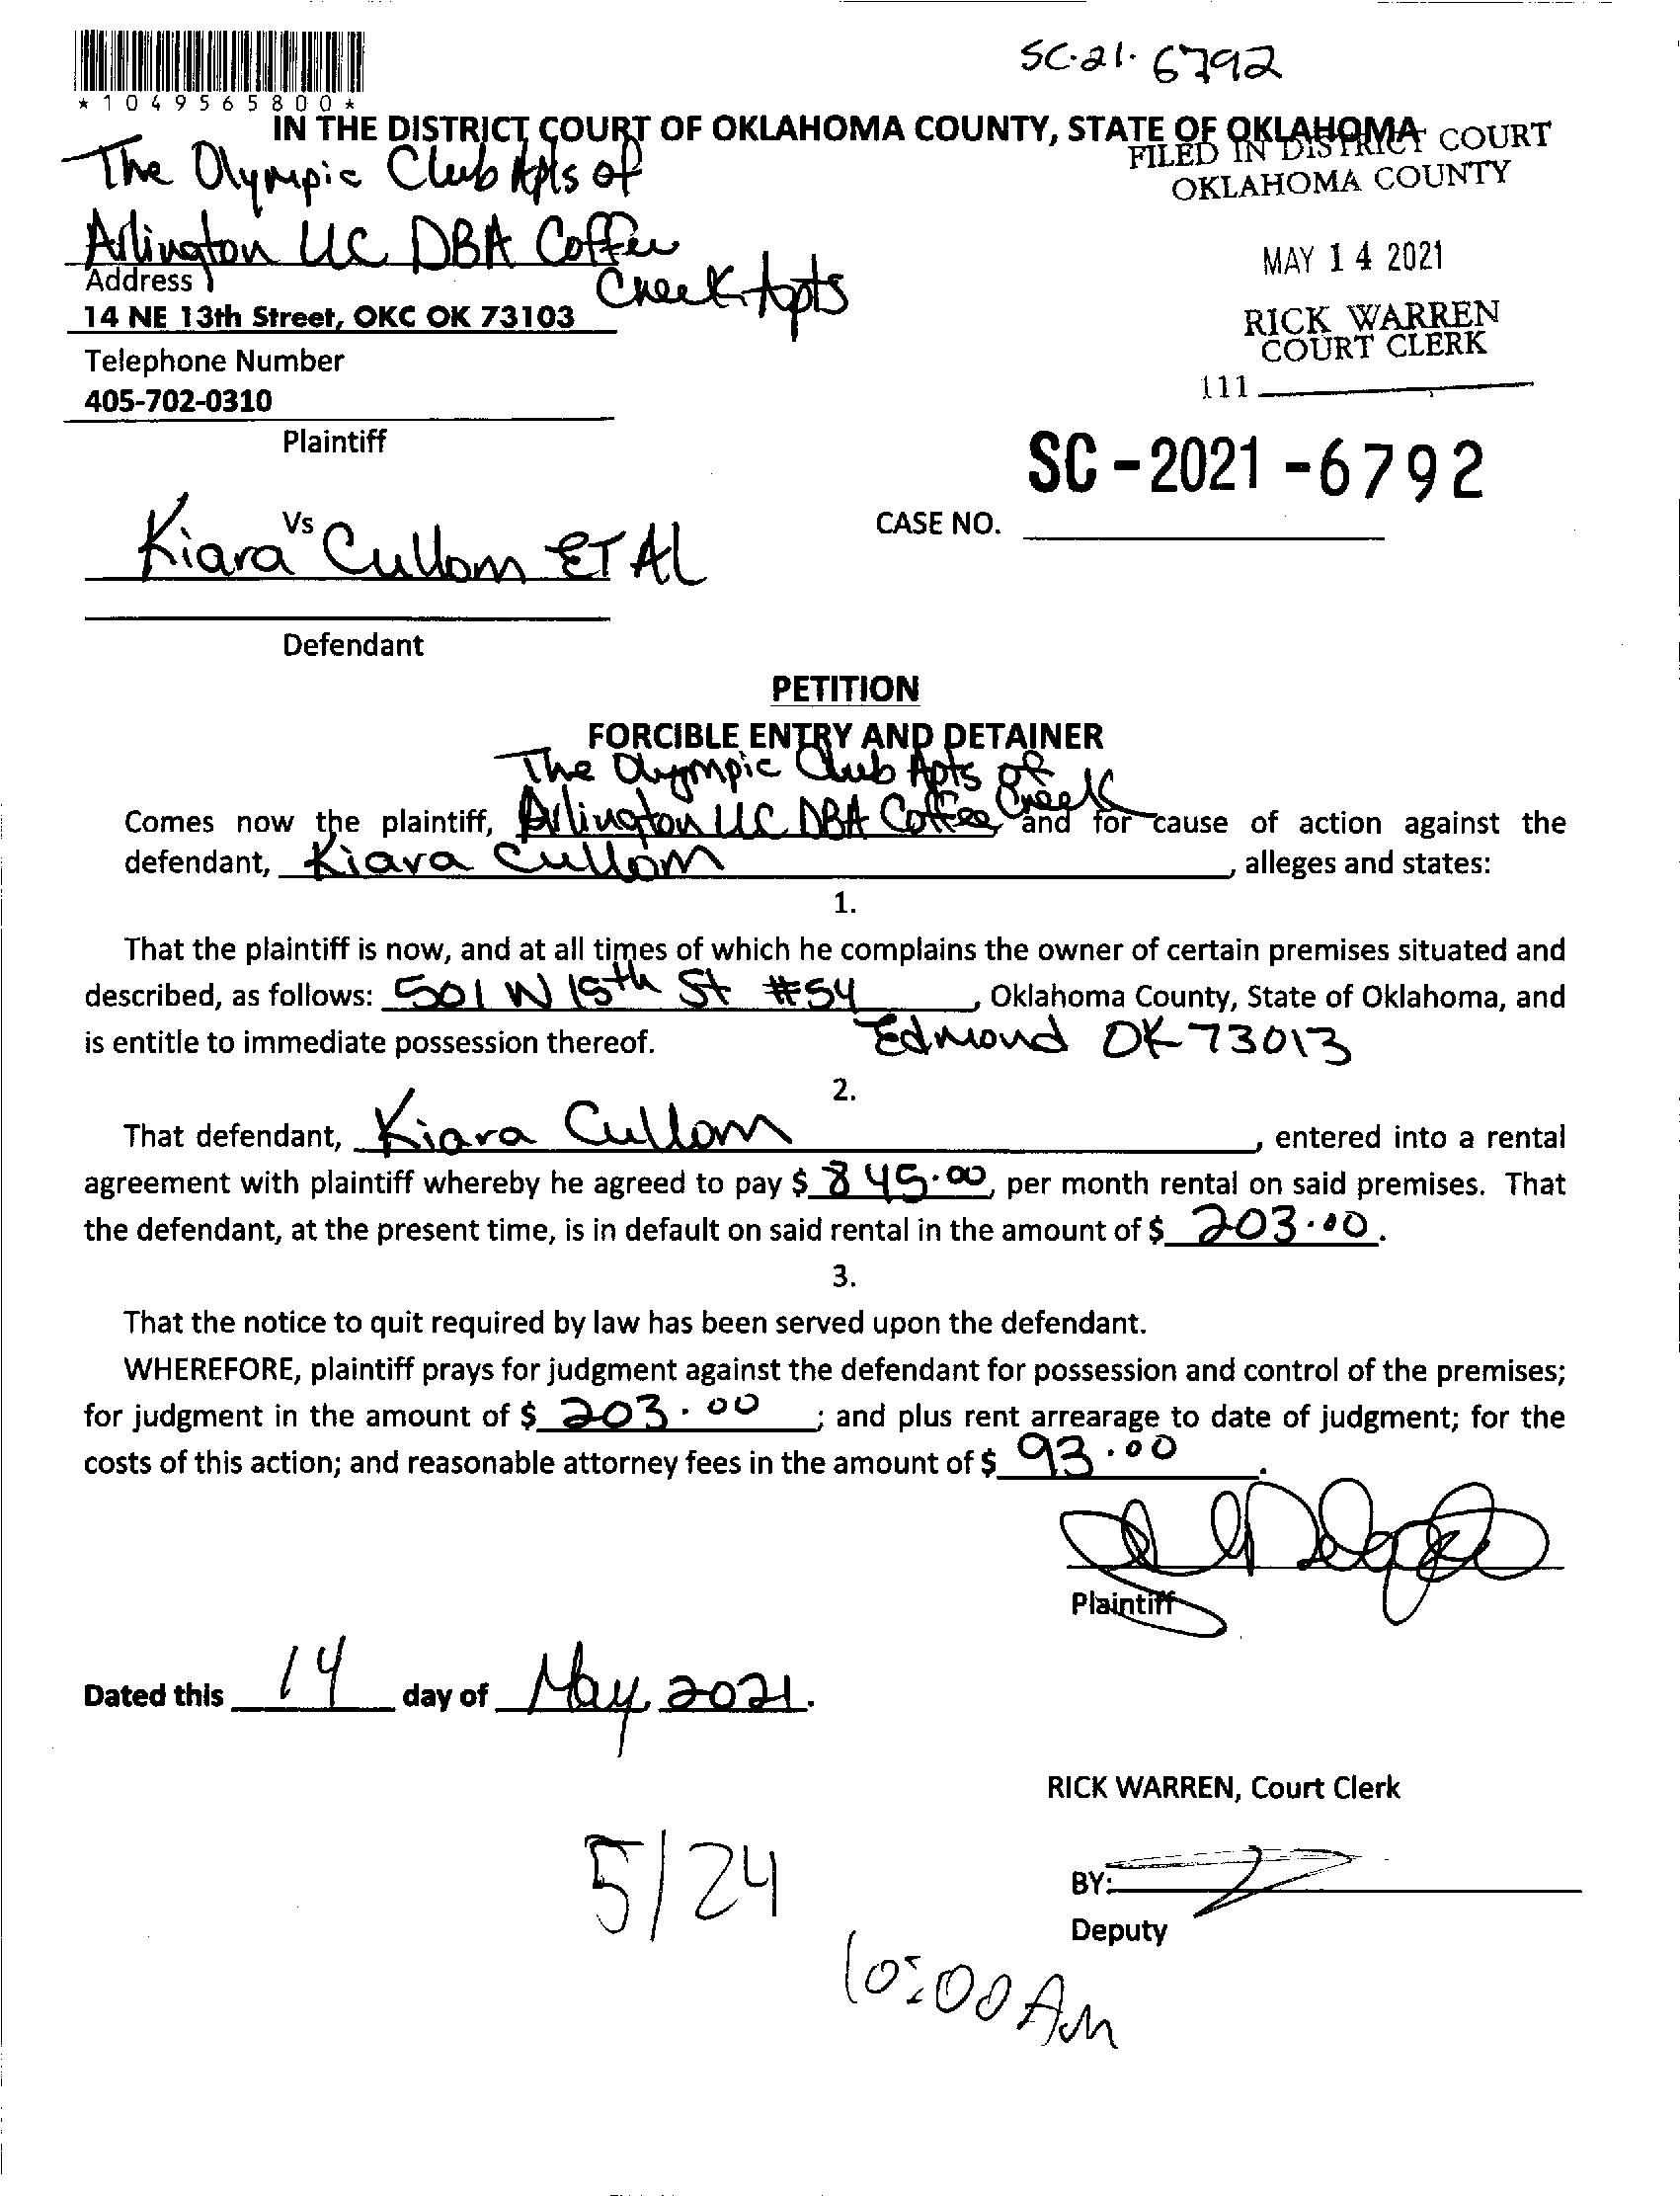 SC-21-6792
*1049565800*
IN THE DISTRICT COURT OF OKLAHOMA COUNTY, STATE OF OKLAHOMA
FILED IN DISTRICT COURT
OKLAHOMA COUNTY
The Olympic Club Apts of
Arlington LLC DBA Coffee
Creek Apts
MAY 14 2021
Address
14 NE 13th Street, OKC OK 73103
RICK WARREN
COURT CLERK
Telephone Number
405-702-0310
111
Plaintiff
SC-2021-6792
Vs
CASE NO.
Kiara Cullom ET Al
Defendant
PETITION
FORCIBLE ENTRY AND DETAINER
The Olympic Club Apts of
Comes now the plaintiff, Arlington LLC DBA Coffee Creek and for cause of action against the
defendant, Kiara Cullom, alleges and states:
1.
That the plaintiff is now, and at all times of which he complains the owner of certain premises situated and
described, as follows: 501 W 15th St #54, Oklahoma County, State of Oklahoma, and
is entitle to immediate possession thereof. Edmond OK 73013
2.
That defendant, Kiara Cullom, entered into a rental
agreement with plaintiff whereby he agreed to pay $ 845.00, per month rental on said premises. That
the defendant, at the present time, is in default on said rental in the amount of $ 203.00.
3.
That the notice to quit required by law has been served upon the defendant.
WHEREFORE, plaintiff prays for judgment against the defendant for possession and control of the premises;
for judgment in the amount of $ 203.00; and plus rent arrearage to date of judgment; for the
costs of this action; and reasonable attorney fees in the amount of $ 93.00.
Plaintiff
Dated this 14 day of May, 2021.
RICK WARREN, Court Clerk
5/24
BY:
Deputy
10:00 AM